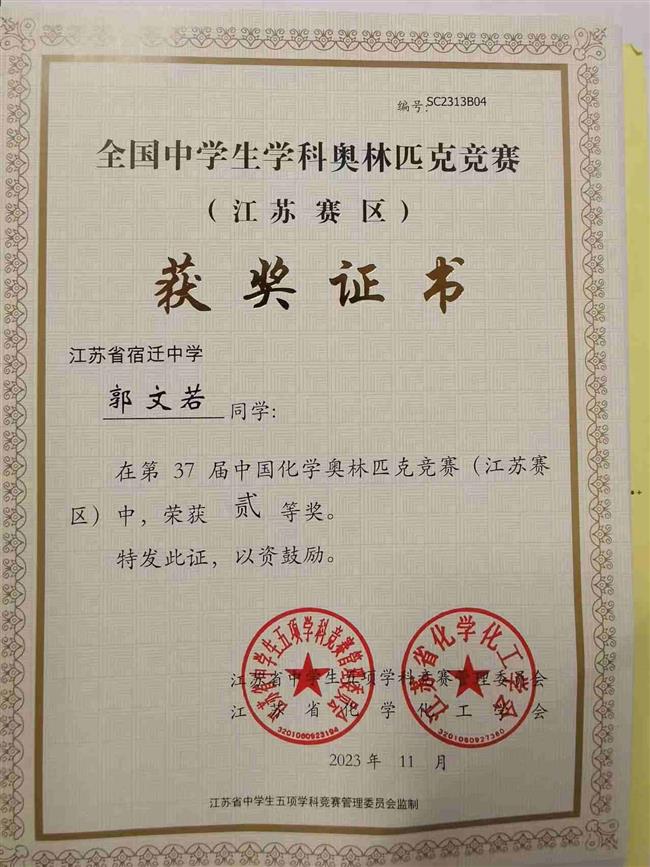 编号:SC2313B04
全国中学生学科奥林匹克竞赛
（江苏赛区）
获奖证书
江苏省宿迁中学
郭文若 同学:
在第 37 届中国化学奥林匹克竞赛（江苏赛
区）中，荣获 贰 等奖。
特发此证，以资鼓励。
江苏省中学生五项学科竞赛管理委员会
江苏省化学化工学会
江苏省中学生五项学科竞赛管理委员会
3201060923194
江苏省化学化工学会
3201060927360
2023 年 11 月
江苏省中学生五项学科竞赛管理委员会监制